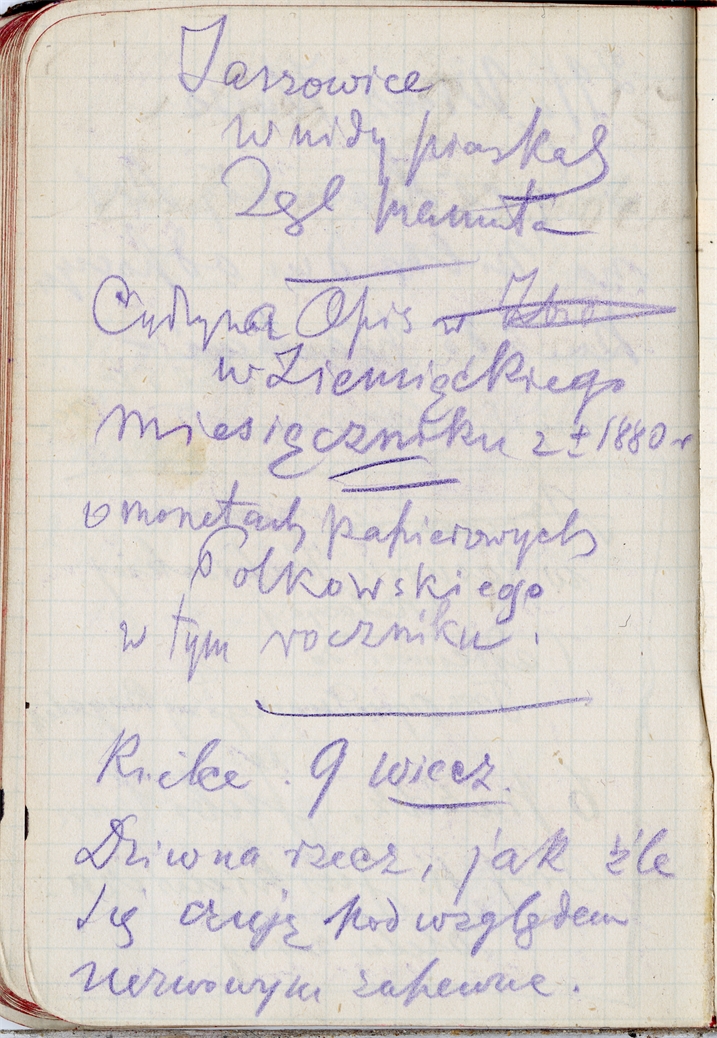 w nidy piaskach
Zgl
Opis w
w Ziemięckiego
Miesięczniku z ± 1880 r
o monetach papierowych
Polkowskiego
w tym roczniku.
9 wiecz.
Dziwna rzecz, jak źle
się czuję pod względem
nerwowym zapewne.